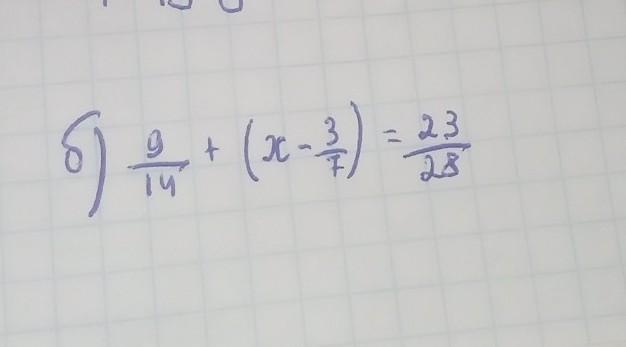 б) 9/14 + (x - 3/7) = 23/28